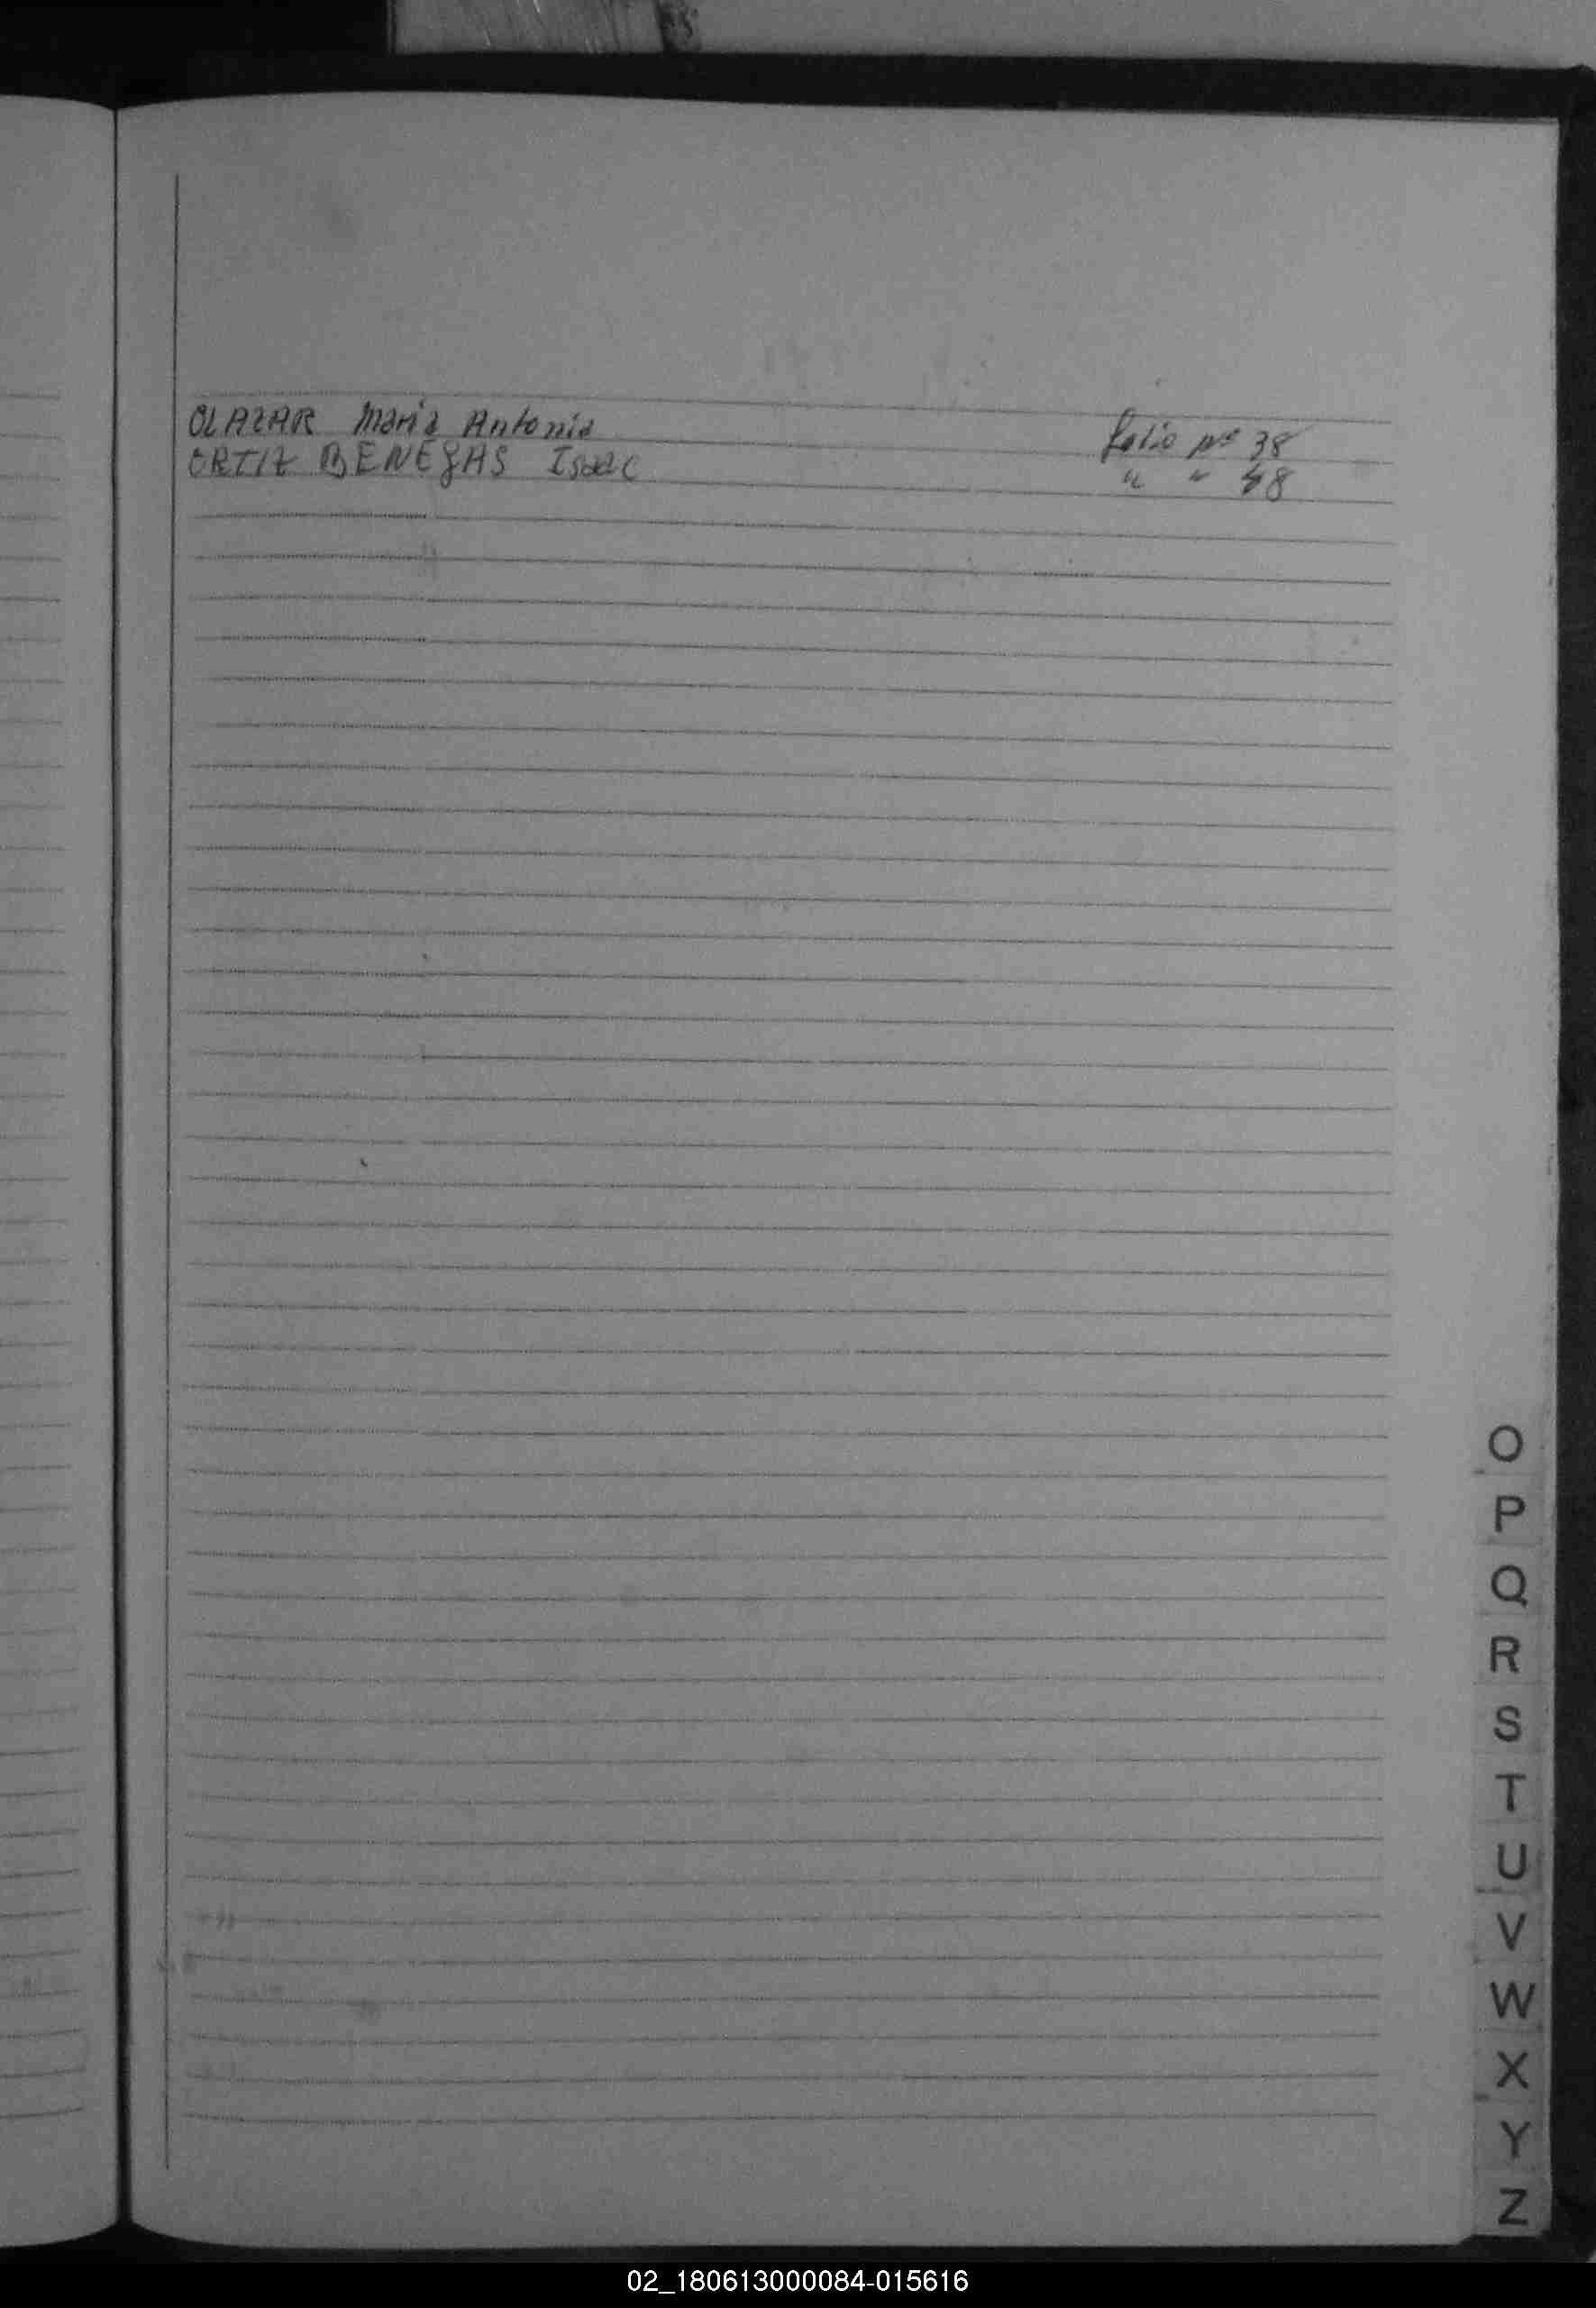 OLAZAR Maria Antonia folio Nº 38
ORTIZ BENEGAS Isaac " " 48
O
P
Q
R
S
T
U
V
W
X
Y
Z
02_180613000084-015616